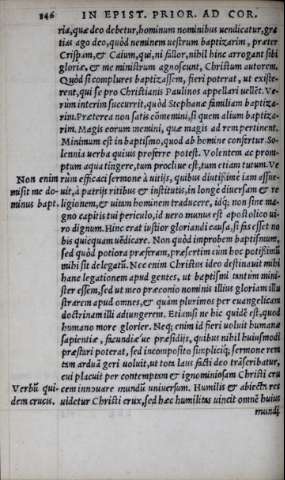 246 IN EPIST. PRIOR. AD COR.
ria, quæ deo debetur, hominum nominibus uendicatur, gra
tias ago deo, quòd neminem uestrum baptizarim, præter
Crispum, & Caium, qui, ni fallor, nihil hinc arrogant sibi
gloriæ, & me ministrum agnoscunt, Christum autorem.
Quòd si complures baptizassem, fieri poterat, ut existe-
rent, qui se pro Christianis Paulinos appellari uellēt. Ve
rùm interim succurrit, quòd Stephanæ familiam baptiza-
rim. Præterea non satis cōmemini, si quem alium baptiza-
rim. Magis eorum memini, quæ magis ad rem pertinent.
Minimum est in baptismo, quod ab homine confertur. So-
lennia uerba quiuis proferre potest. Volentem ac prom-
ptum aqua tingere, tum procliue est, tum etiam tutum. Ve
Non enim rùm efficaci sermone à uitijs, quibus diutissimè iam assue-
misit me do- uit, à patrijs ritibus & institutis, in longè diuersam & re
minus bapt. ligionem, & uitam hominem traducere, idq́; non sine ma-
gno capitis tui periculo, id uero munus est apostolico ui-
ro dignum. Hinc erat iustior gloriandi causa, si fas esset no
bis quicquam uēdicare. Non quòd improbem baptismum,
sed quòd potiora præferam, præsertim cùm hoc potissimū
mihi sit delegatū. Nec enim Christus ideo destinauit mihi
hanc legationem apud gentes, ut baptismi tantùm mini-
ster essem, sed ut meo præconio nominis illius gloriam illu
strarem apud omnes, & quàm plurimos per euangelicam
doctrinam illi adiungerem. Etiamsi ne hic quidē est, quod
humano more glorier. Neq́; enim id fieri uoluit humanæ
sapientiæ, facundiæ ue præsidijs, quibus nihil huiusmodi
præstari poterat, sed incomposito simpliciq́; sermone rem
tam arduā geri uoluit, ut tota laus facti deo trāscribatur,
cui placuit per contemptam & ignominiosam Christi cru
Verbū qui- cem innouare mundū uniuersum. Humilis & abiecta res
dem crucis. uidetur Christi crux, sed hæc humilitas uincit omnē huius
mundi